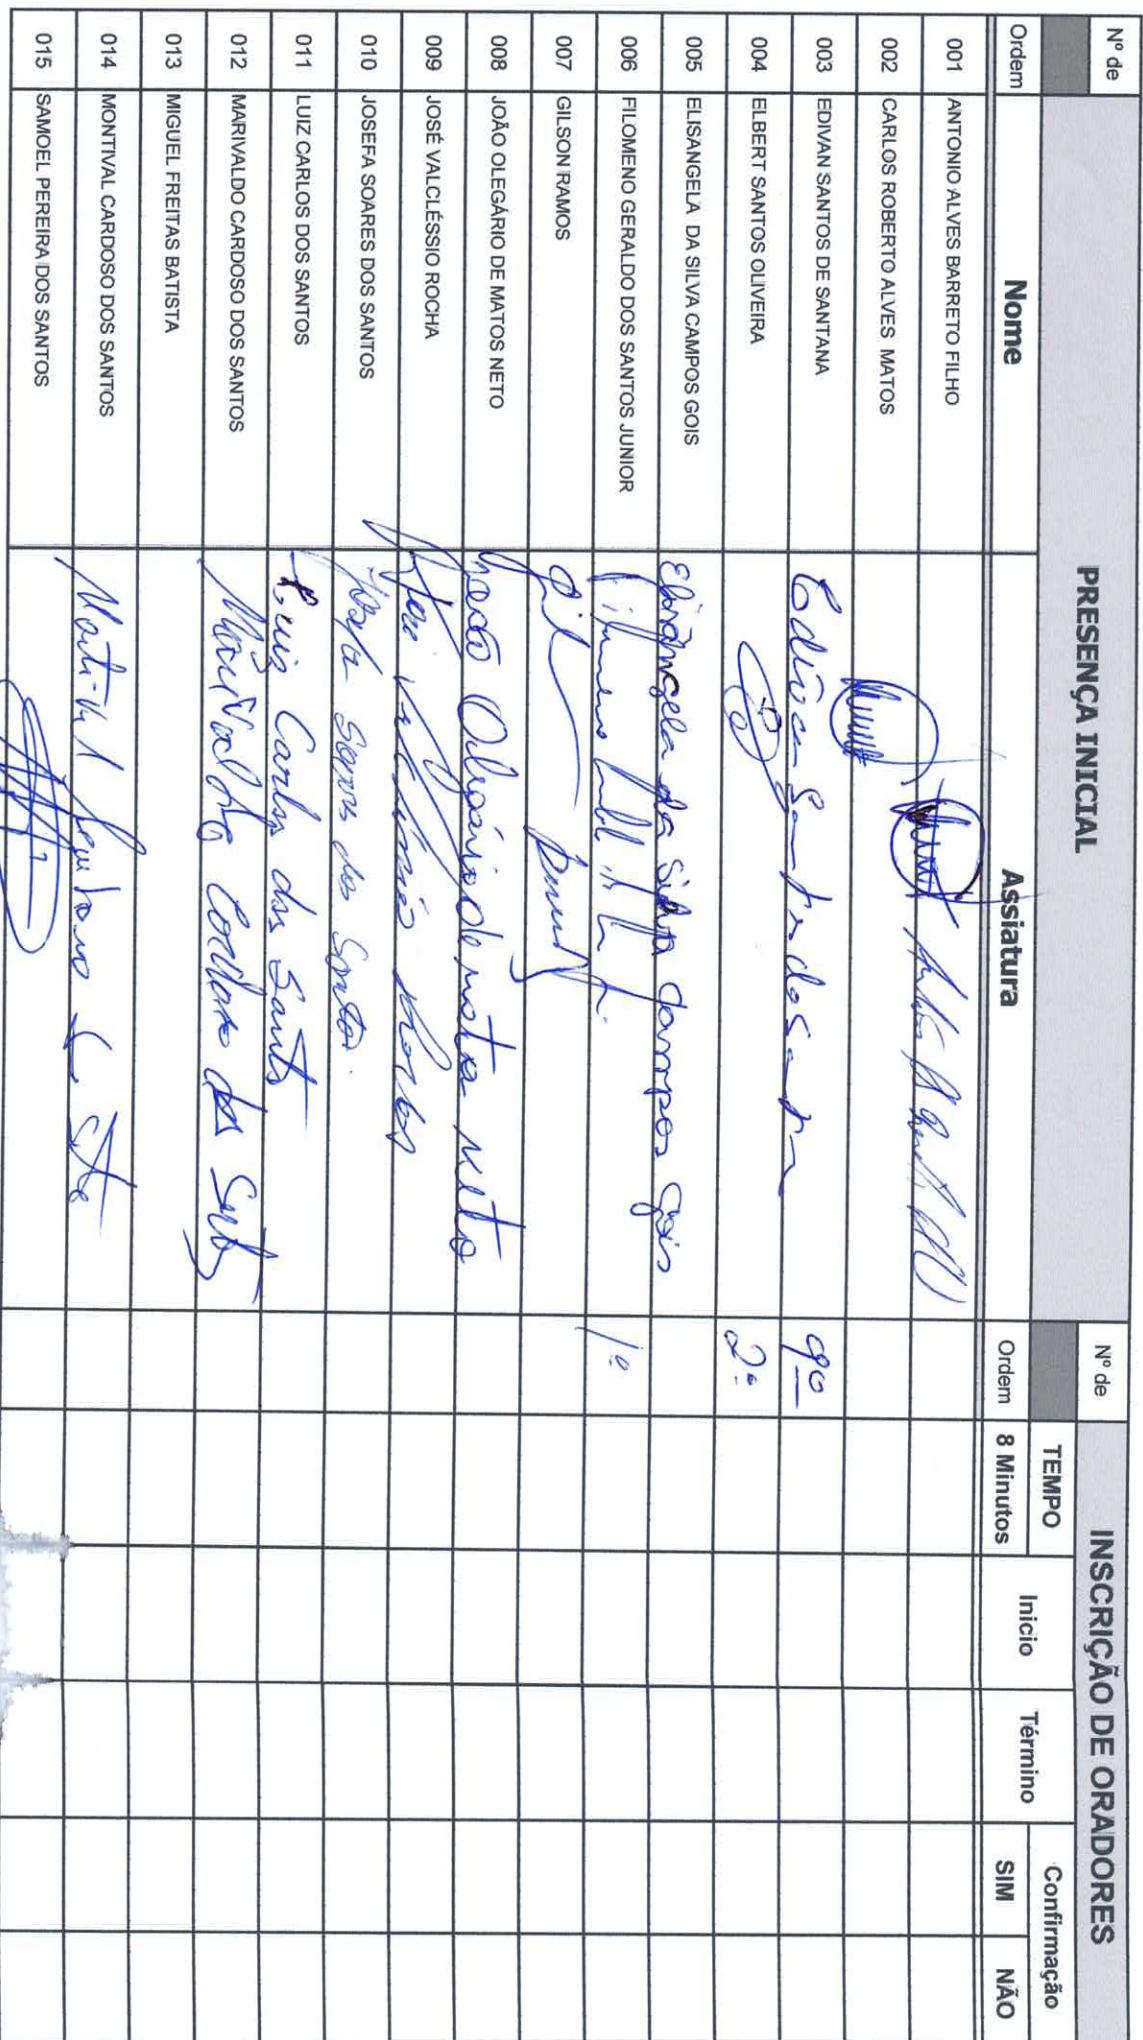 PRESENÇA INICIAL INSCRIÇÃO DE ORADORES
Nº de Nº de TEMPO Confirmação
Ordem Nome Assiatura Ordem 8 Minutos Inicio Término SIM NÃO
001 ANTONIO ALVES BARRETO FILHO
002 CARLOS ROBERTO ALVES MATOS
003 EDIVAN SANTOS DE SANTANA Edivan Santos de Santana 9º
004 ELBERT SANTOS OLIVEIRA 2º
005 ELISANGELA DA SILVA CAMPOS GOIS Elisangela da Silva Campos Gois
006 FILOMENO GERALDO DOS SANTOS JUNIOR 1º
007 GILSON RAMOS Gil
008 JOÃO OLEGÁRIO DE MATOS NETO João Olegário de matos neto
009 JOSÉ VALCLÉSSIO ROCHA
010 JOSEFA SOARES DOS SANTOS Josefa Soares dos Santos
011 LUIZ CARLOS DOS SANTOS Luiz Carlos dos Santos
012 MARIVALDO CARDOSO DOS SANTOS Marivaldo Cardoso dos Santos
013 MIGUEL FREITAS BATISTA
014 MONTIVAL CARDOSO DOS SANTOS Montival
015 SAMOEL PEREIRA DOS SANTOS